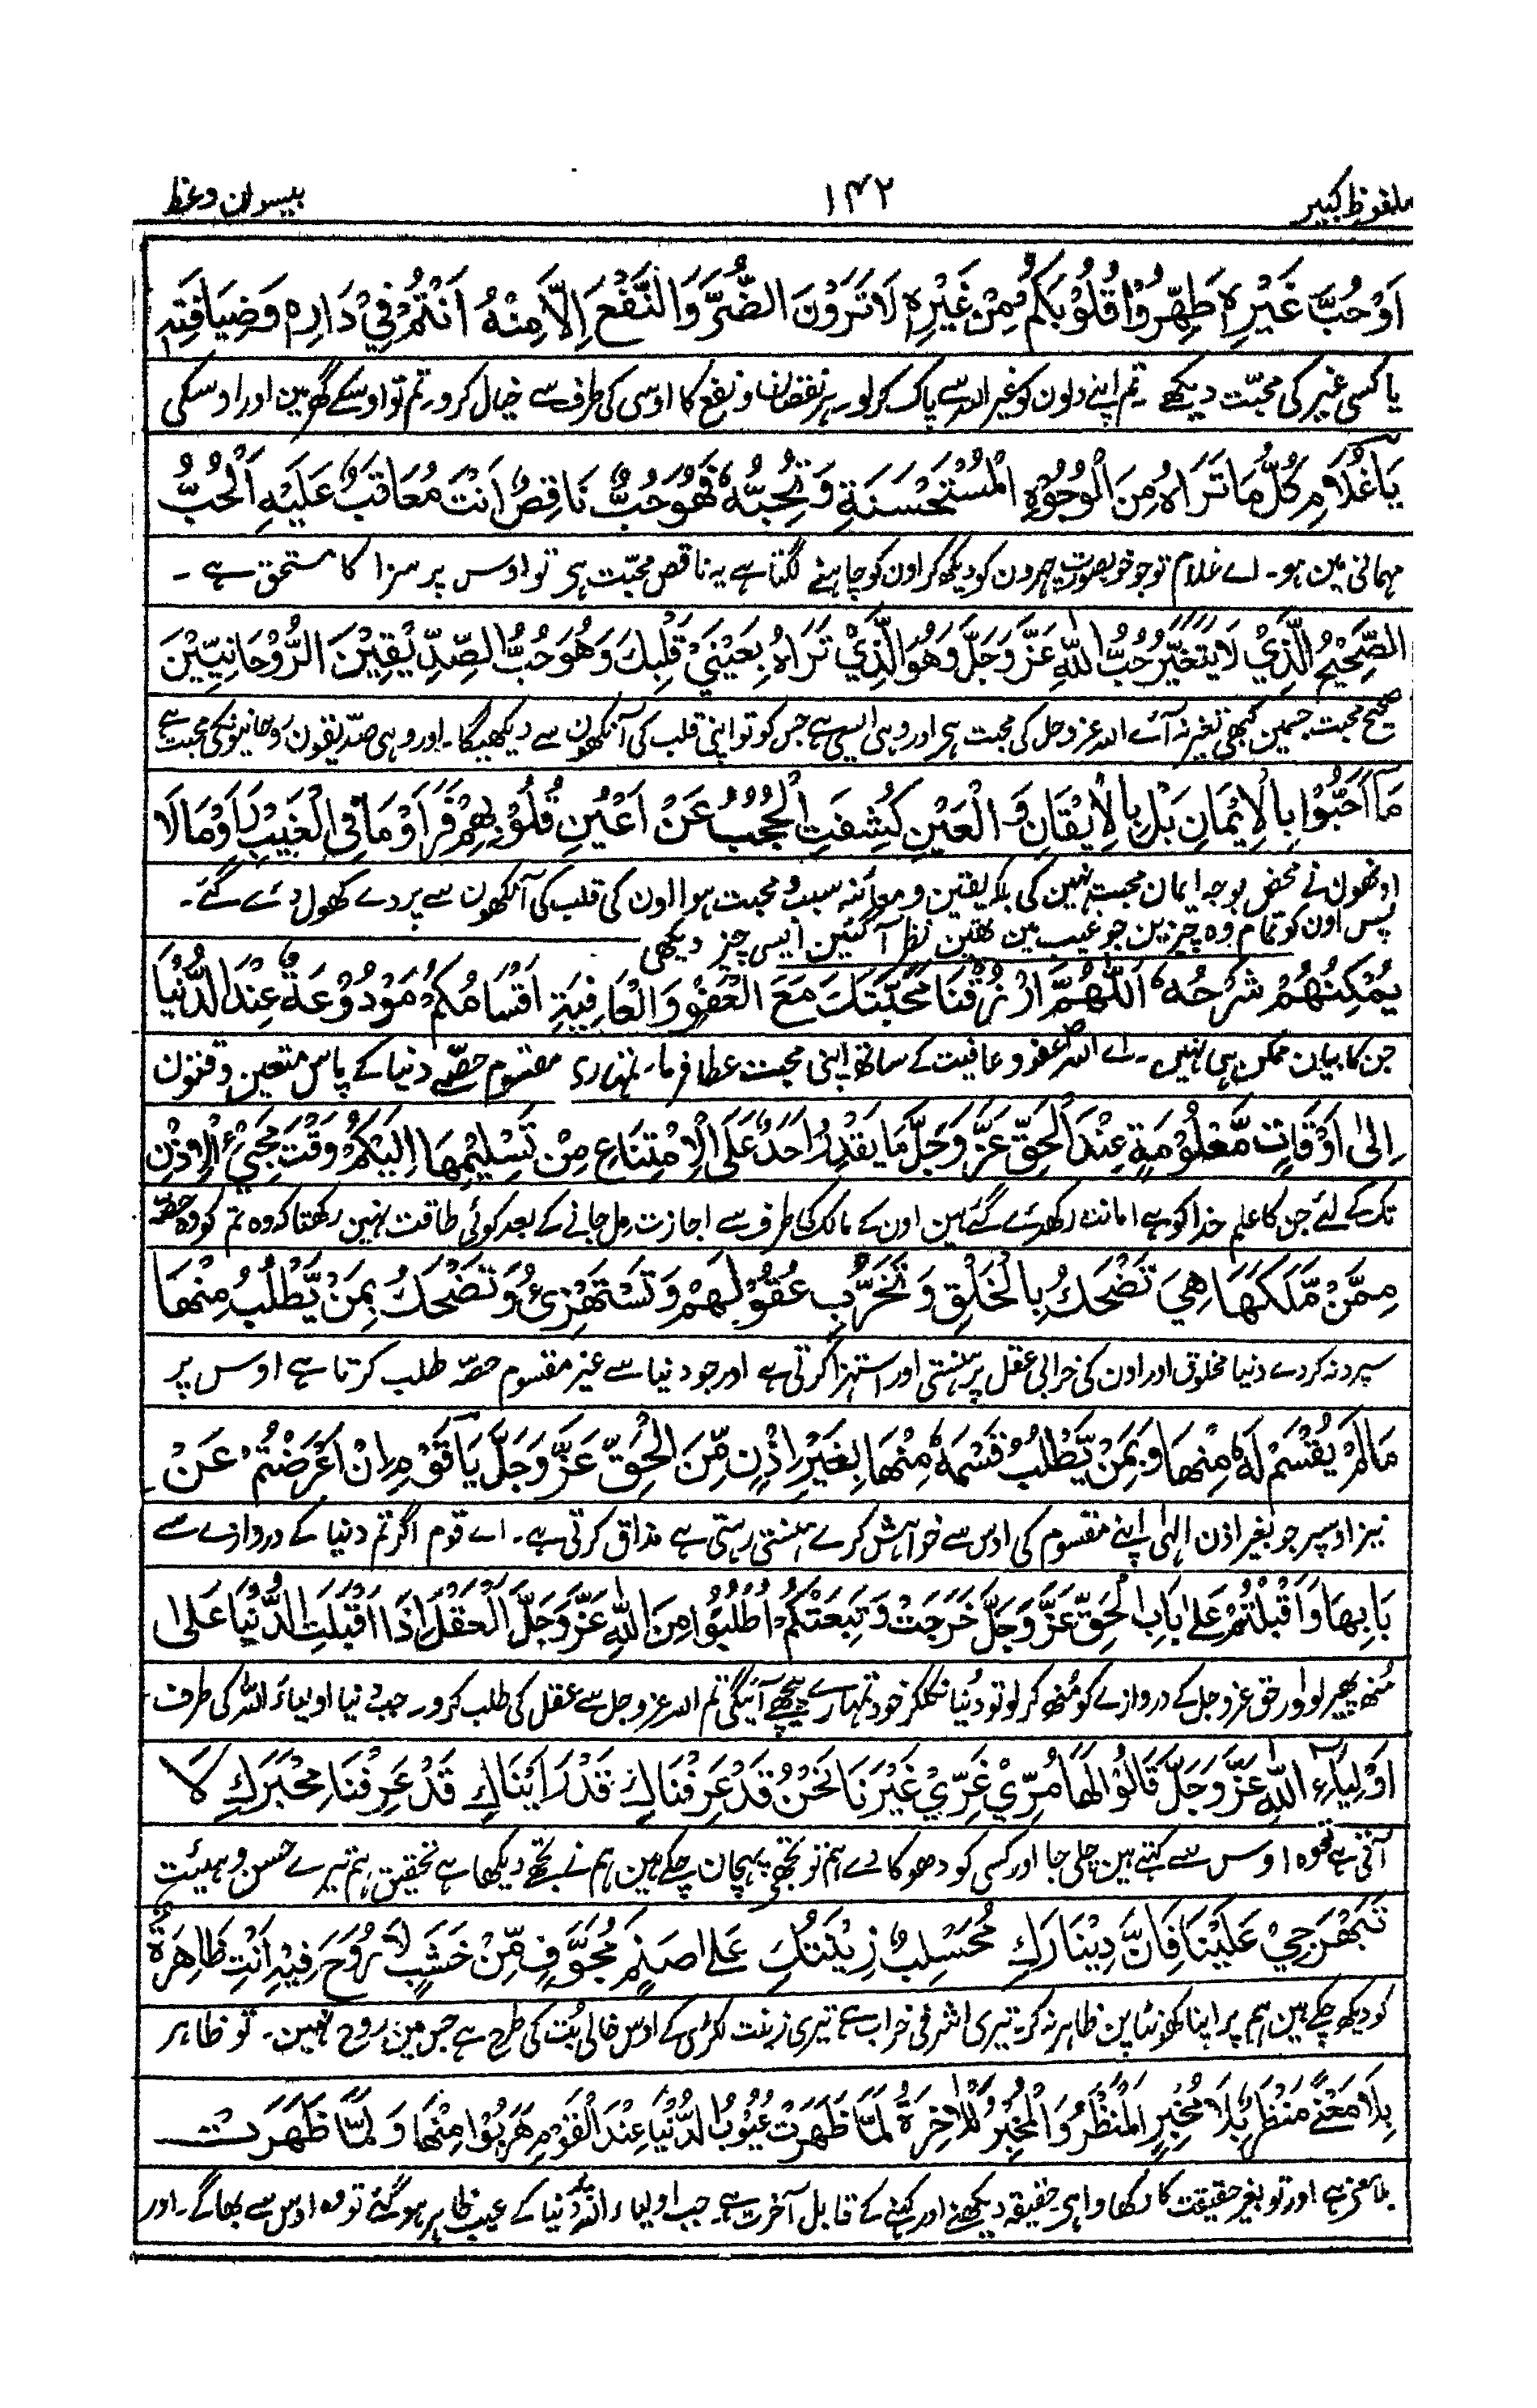 ملفوظ کبیر ۱۴۲ بیسوان وعظ
اَوْحُبَّ غَيْرِهٖ طَهِّرُوْا قُلُوْبَكُمْ مِنْ غَيْرِهٖ لَا تَرَوْنَ الضُّرَّ وَالنَّفْعَ اِلَّا مِنْهُ اَنْتُمْ فِيْ دَارِهٖ وَضِيَافَتِهٖ
یا کسی غیر کی محبّت دیکھے ۔ تم اپنے دلون کو غیر اللہ سے پاک کرلو ہر نقصان و نفع کا اوسی کی طرف سے خیال کرو ۔ تم تو اوسکے گھر مین اور اوسکی
يَا غُلَامُ كُلُّ مَا تَرَاهُ مِنَ الْوُجُوْهِ الْمُسْتَحْسَنَةِ وَتُحِبُّهٗ فَهُوَ حُبٌّ نَاقِصٌ اَنْتَ مُعَاقَبٌ عَلَيْهِ اَلْحُبُّ
مہمانی مین ہو ۔ اے غلام تو جو خوبصورت چہرون کو دیکھ کر اون کو چاہنے لگتا ہے یہ ناقص محبّت ہی تو اوس پر سزا کا مستحق ہے ۔
الصَّحِيْحُ الَّذِيْ لَا يَتَغَيَّرُ حُبُّ اللهِ عَزَّوَجَلَّ وَهُوَ الَّذِيْ تَرَاهُ بِعَيْنَيْ قَلْبِكَ وَهُوَ حُبُّ الصِّدِّيْقِيْنَ الرُّوْحَانِيِّيْنَ
صحیح محبت جسمین کبھی تغیر نہ آئے اللہ عزوجل کی محبت ہی اور وہی ایسی ہے جس کو تو اپنی قلب کی آنکھون سے دیکھیگا ۔ اور وہی صدّیقون روحانیونکی محبت ہے
مَا اَحَبُّوْا بِالْاِيْمَانِ بَلْ بِالْاِيْقَانِ وَالْعَيْنِ كُشِفَتِ الْحُجُبُ عَنْ اَعْيُنِ قُلُوْبِهِمْ فَرَاَوْ مَا فِي الْغَيْبِ رَاَوْ مَا لَا
اونھون نے محض بوجہ ایمان محبت نہین کی بلکہ یقین و معائنہ سبب محبت ہوا اون کی قلب کی آنکھون سے پردے کھول دئے گئے ۔
پس اون کو تمام وہ چیزین جو غیب مین تھین نظر آ گئین ایسی چیز دیکھی
يُمْكِنُهُمْ شَرْحُهٗ اَللّٰهُمَّ ارْزُقْنَا مَحَبَّتَكَ مَعَ الْعَفْوِ وَالْعَافِيَةِ اَقْسَامُكُمْ مَوْدُوْعَةٌ عِنْدَ الدُّنْيَا
جن کا بیان ممکن ہی نہیں ۔ اے اللہ عفو و عافیت کے ساتھ اپنی محبت عطا فرما ۔ تمہاری مقسوم حصّے دنیا کے پاس متعین وقتون
اِلٰى اَوْقَاتٍ مَّعْلُوْمَةٍ عِنْدَ الْحَقِّ عَزَّوَجَلَّ مَا يَقْدِرُ اَحَدٌ عَلَى الْاِمْتِنَاعِ مِنْ تَسْلِيْمِهَا اِلَيْكُمْ وَقْتَ مَجِيْءِ الْاِذْنِ
تک کے لئے جن کا علم خدا کو ہے امانت رکھدئے گئے ہین اون کے مالک کی طرف سے اجازت مل جانے کے بعد کوئی طاقت نہین رکھتا کہ وہ تم کو وہ حصّہ
مِمَّنْ مَّلَكَهَا هِيَ تَضْحَكُ بِالْخَلْقِ وَتُخَرِّبُ عُقُوْلَهُمْ وَتَسْتَهْزِئُ وَتَضْحَكُ بِمَنْ يَّطْلُبُ مِنْهَا
سپرد نہ کردے دنیا مخلوق اور اون کی خرابی عقل پر ہنستی اور استہزا کرتی ہے اور جو دنیا سے غیر مقسوم حصّہ طلب کرتا ہے اوس پر
مَا لَمْ يُقْسَمْ لَهٗ مِنْهَا وَبِمَنْ يَّطْلُبُ قَسْمَهٗ مِنْهَا بِغَيْرِ اِذْنٍ مِّنَ الْحَقِّ عَزَّوَجَلَّ يَا قَوْمِ اِنْ اَعْرَضْتُمْ عَنْ
نیز اوسپر جو بغیر اذن الٰہی اپنے مقسوم کی اوس سے خواہش کرے ہنستی رہتی ہے مذاق کرتی ہے ۔ اے قوم اگر تم دنیا کے دروازے سے
بَابِهَا وَاَقْبَلْتُمْ عَلٰى بَابِ الْحَقِّ عَزَّوَجَلَّ خَرَجَتْ وَتَبِعَتْكُمْ اُطْلُبُوْا مِنَ اللهِ عَزَّوَجَلَّ الْعَقْلَ اِذَا اَقْبَلَتِ الدُّنْيَا عَلٰى
مُنھ پھیر لو اور حق عزوجل کے دروازے کو مُنھ کر لو تو دُنیا نکلکر خود تمہارے پیچھے آئیگی تم اللہ عزوجل سے عقل کی طلب کرو ۔ جب دنیا اولیاء اللہ کی طرف
اَوْلِيَاءِ اللهِ عَزَّوَجَلَّ قَالُوْا لَهَا مُرِّيْ غُرِّيْ غَيْرَنَا نَحْنُ قَدْ عَرَفْنَاكِ قَدْ رَاَيْنَاكِ قَدْ عَرِفْنَا مَخْبَرَكِ لَا
آتی ہے تو وہ اوس سے کہتے ہین چلی جا اور کسی کو دھوکا دے ہم تو تجھے پہچان چکے ہین ہم نے تجھے دیکھا ہے تحقیق ہم تیرے حسن و ہیئت
تَبَهْرَجِيْ عَلَيْنَا فَاِنَّ دِيْنَارَكِ زِيْنَتُكِ عَلٰى صَنَمٍ مُجَوَّفٍ مِّنْ خَشَبٍ لَا رُوْحَ فِيْهِ اَنْتِ ظَاهِرَةٌ
کو دیکھ چکے ہین ہم پر اپنا کھوٹاپن ظاہر نہ کر ۔ تیری اشرفی خراب ہے تیری زینت لکڑی کے اوس خالی بُت کی طرح ہے جس مین روح نہین ۔ تو ظاہر
بِلَا مَعْنًى مَنْظَرٌ بِلَا مَخْبَرٍ الْمَنْظَرُ وَالْمَخْبَرُ لِلْاٰخِرَةِ لَمَّا ظَهَرَتْ عُيُوْبُ الدُّنْيَا عِنْدَ الْقَوْمِ هَرَبُوْا مِنْهَا وَلَمَّا ظَهَرَتْ
بلا معنی ہے اور تو بغیر حقیقت کا دکھاوا ہی حقیقۃ دیکھنے اور کہنے کے قابل آخرت ہے ۔ جب اولیاء اللہ پر دُنیا کے عیب ظاہر ہو گئے تو وہ اوس سے بھاگے ۔ اور